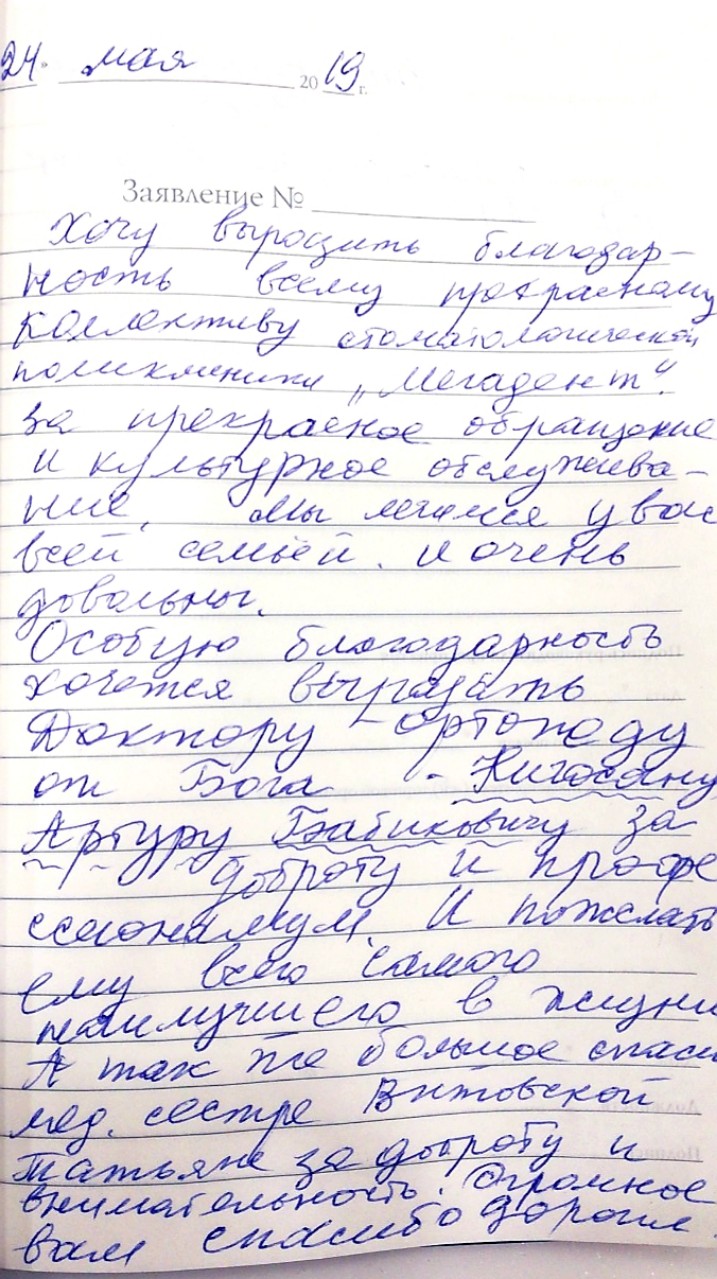 24. мая 2019 г.
Заявление №
Хочу выразить благодар-
ность всему прекрасному
коллективу стоматологической
поликлиники „Мегадент".
за прекрасное обращение
и культурное обслужива-
ние, мы лечимся у вас
всей семьёй. и очень
довольны.
Особую благодарность
хочется выразить
Доктору - ортопеду
от Бога -
Артуру Бабиковичу за
доброту и профе
ссионализм. И пожелать
ему всего самого
наилучшего в жизни
А так же большое спаси
мед. сестре Витовской
Татьяне за доброту и
внимательность. Огромное
вам спасибо дорогим